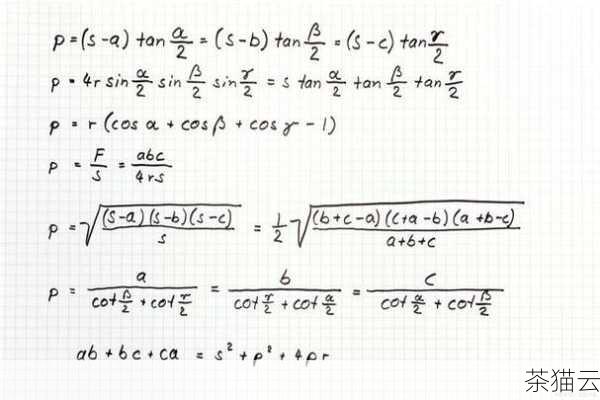 p = (s-a) tan α/2 = (s-b) tan β/2 = (s-c) tan γ/2
p = 4r sin α/2 sin β/2 sin γ/2 = s tan α/2 tan β/2 tan γ/2
p = r (cos α + cos β + cos γ - 1)
p = F/s = abc/4rs
p = √((s-a)(s-b)(s-c)/s) = 1/2 √((b+c-a)(c+a-b)(a+b-c)/a+b+c)
p = a/(cot β/2 + cot γ/2) = b/(cot γ/2 + cot α/2) = c/(cot α/2 + cot β/2)
ab + bc + ca = s² + p² + 4pr
茶猫云